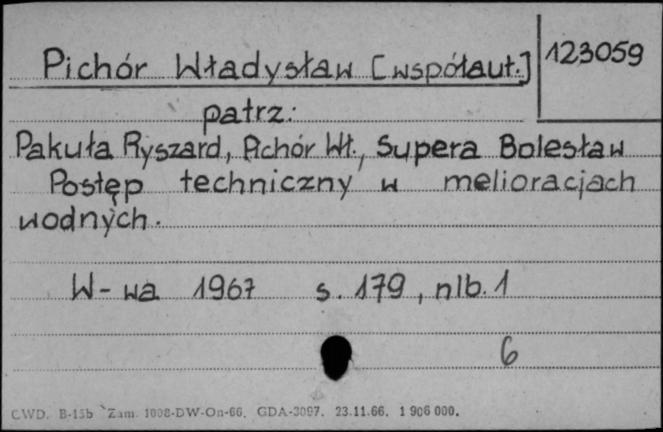 Pichór Władysław [współaut.] 123059
patrz:
Pakuła Ryszard, Pichór Wł., Supera Bolesław
Postęp techniczny w melioracjach
wodnych.
W-wa 1967 s. 179, nlb. 1
6
CWD. B-15b Zam. 1008-DW-On-66. GDA-3097. 23.11.66. 1 906 000.